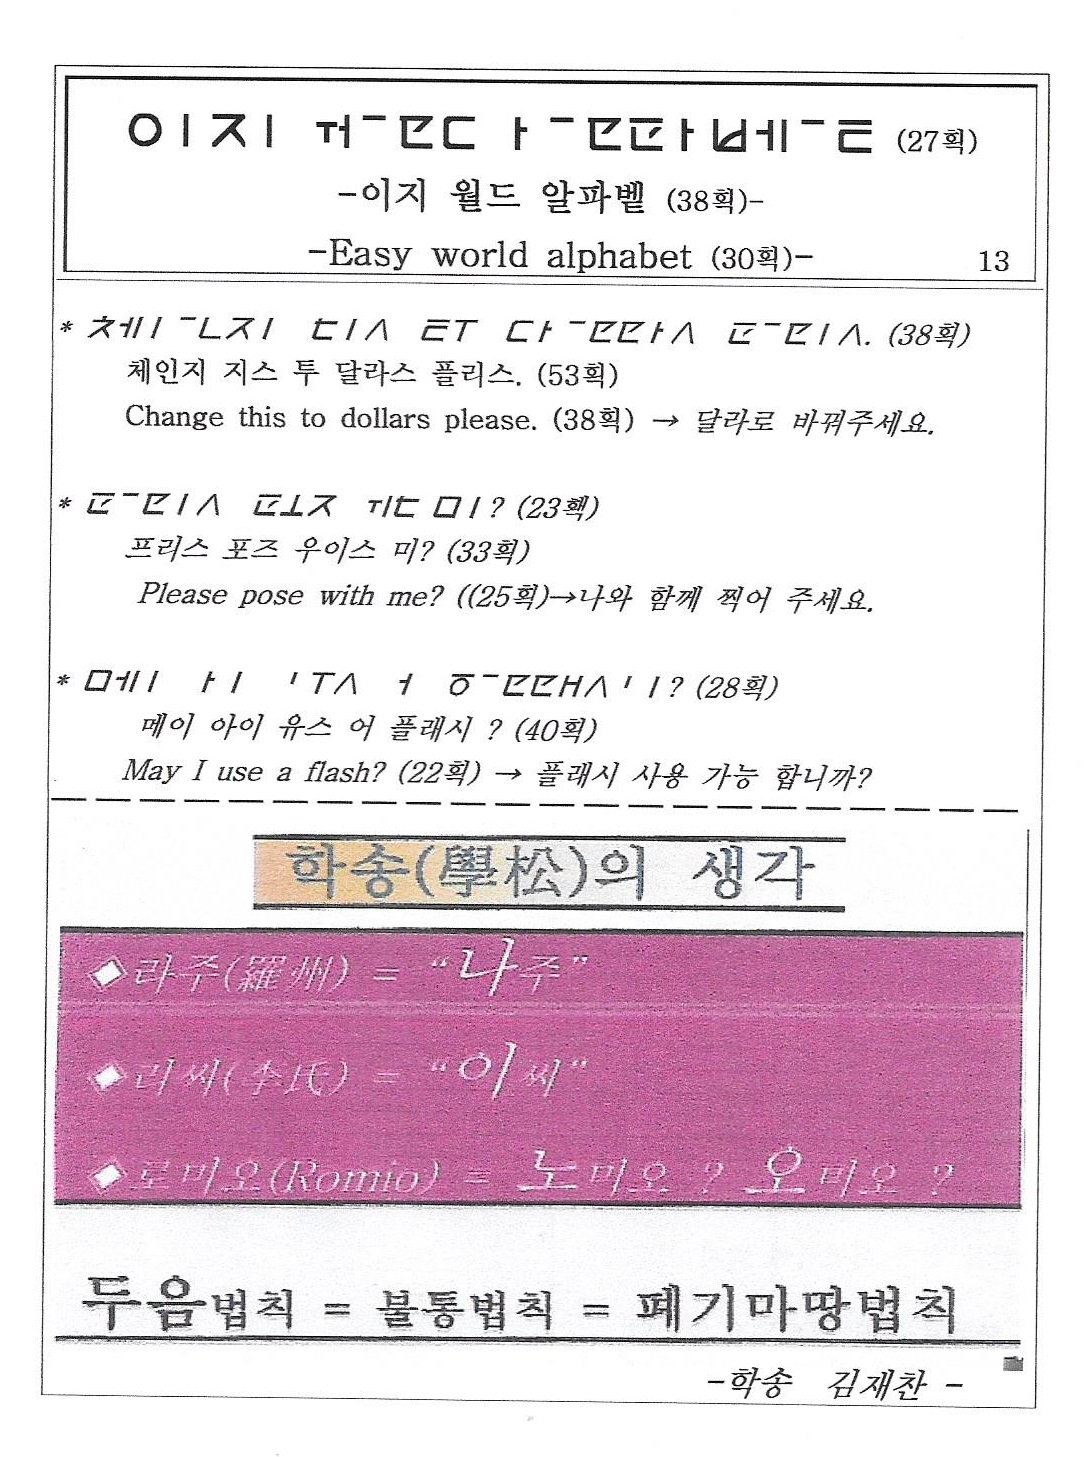 (27획)
-이지 월드 알파벨 (38획)-
-Easy world alphabet (30획)- 13
(38획)
체인지 지스 투 달라스 플리스. (53획)
Change this to dollars please. (38획) → 달라로 바꿔주세요.
? (23획)
프리스 포즈 우이스 미? (33획)
Please pose with me? ((25획)→나와 함께 찍어 주세요.
? (28획)
메이 아이 유스 어 플래시 ? (40획)
May I use a flash? (22획) → 플래시 사용 가능 합니까?
학송(學松)의 생각
◈라주(羅州) = “나주”
◈리씨(李氏) = “이씨”
◈로미오(Romio) = 노미오 ? 오미오 ?
두음법칙 = 불통법칙 = 폐기마땅법칙
-학송 김재찬 -